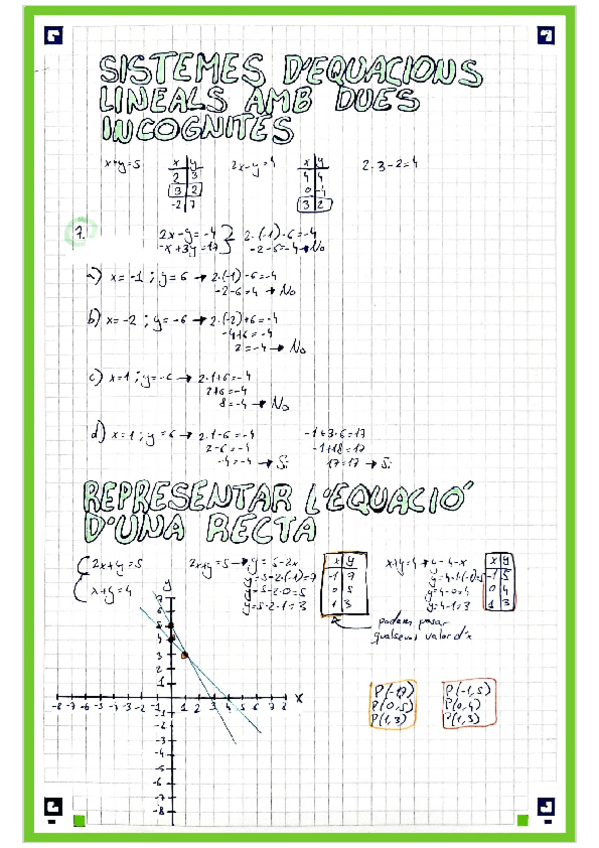 SISTEMES D'EQUACIONS
LINEALS AMB DUES
INCOGNITES
x+y=5
x y
2 3
3 2
-2 7
2x-y=4
x y
4 4
0 -4
3 2
2·3-2=4
1.
2x-y=-4
-x+3y=17
2·(-1)-6=-4
-2-6=-4→No
a) x=-1; y=6 → 2·(-1)-6=-4
-2-6=4 → No
b) x=-2; y=-6 → 2·(-2)+6=-4
-4+6=-4
2=-4 → No
c) x=1; y=-6 → 2·1+6=-4
2+6=-4
8=-4 → No
d) x=1; y=6 → 2·1-6=-4
2-6=-4
-4=-4 → Sí
-1+3·6=17
-1+18=17
17=17 → Sí
REPRESENTAR L'EQUACIÓ
D'UNA RECTA
2x+y=5
x+y=4
2x+y=5→y=5-2x
y=5-2·(-1)=7
y=5-2·0=5
y=5-2·1=3
x y
-1 7
0 5
1 3
x+y=4→4-4-x
y=4-1(-1)=5
y=4-0=4
y=4-1=3
x y
-1 5
0 4
1 3
podem posar
qualsevol valor d'x
y
7
6
5
4
3
2
1
-8 -7 -6 -5 -4 -3 -2 -1 1 2 3 4 5 6 7 8 x
-1
-2
-3
-4
-5
-6
-7
-8
P(-1,7)
P(0,5)
P(1,3)
P(-1,5)
P(0,4)
P(1,3)